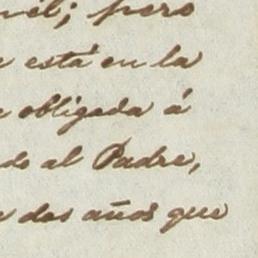 nil; pero
e está en la
e obligada á
do al Padre,
e dos años que